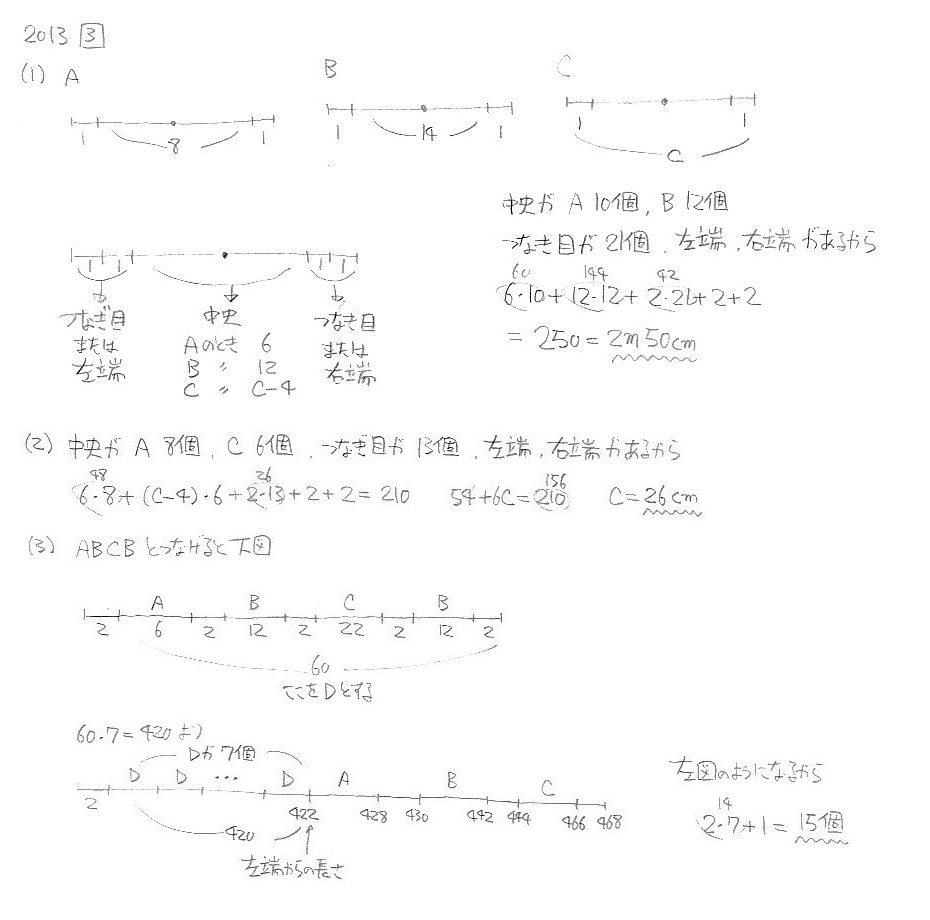 2013 3
(1) A
B
C
1 8 1
1 14 1
1 C 1
中央が A 10個, B 12個
つなぎ目が21個, 左端, 右端があるから
60 144 42
6・10+12・12+2・21+2+2
= 250 = 2m50cm
1 1 1 1
つなぎ目 中央 つなぎ目
または Aのとき 6 または
左端 B 〃 12 右端
C 〃 C-4
(2) 中央が A 8個, C 6個, つなぎ目が 13個, 左端, 右端があるから
48 26 156
6・8+(C-4)・6+2・13+2+2=210 54+6C=210 C=26cm
(3) ABCBとつなげると下図
A B C B
2 6 2 12 2 22 2 12 2
60
ここをDとする
60・7=420より
Dが7個
D D … D A B C
2 422 428 430 442 444 466 468
420
左端からの長さ
左図のようになるから
14
2・7+1=15個